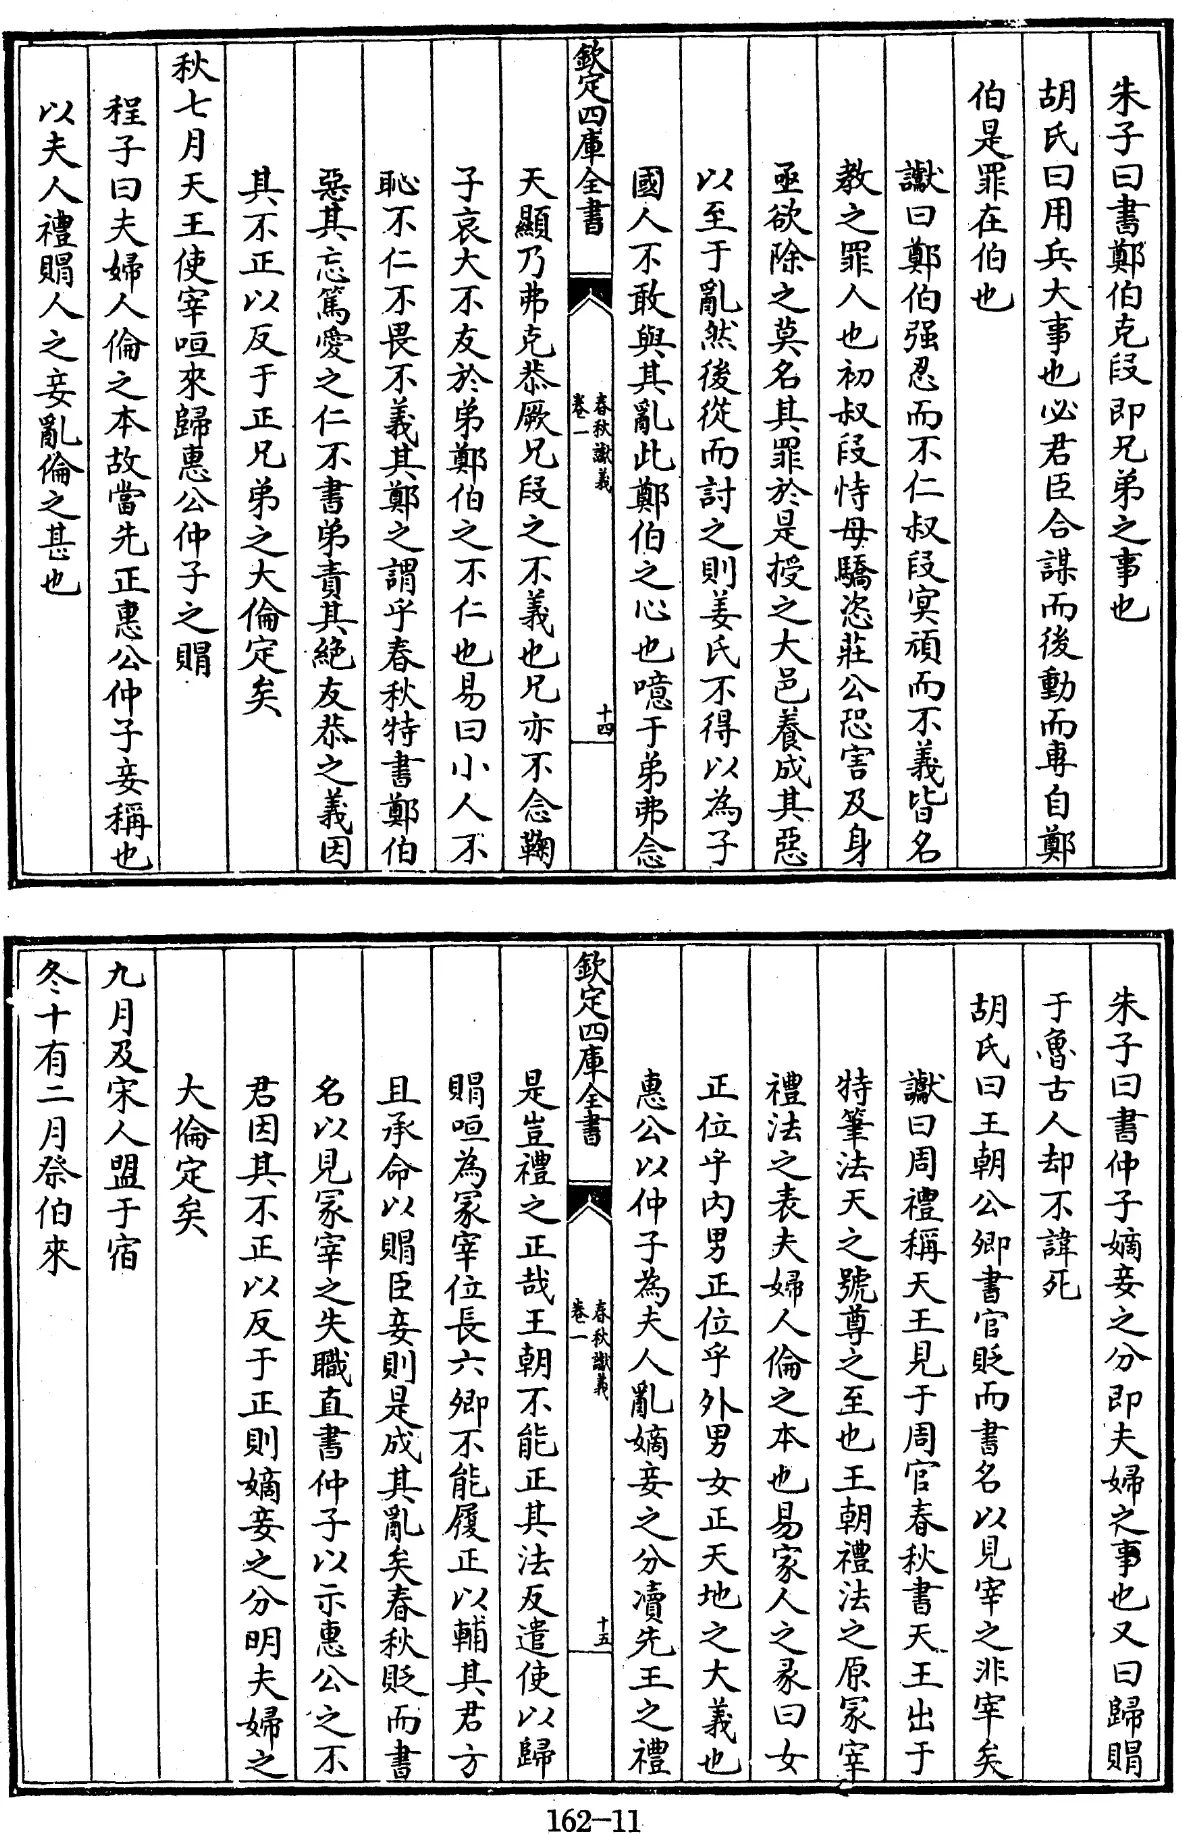 朱子曰書鄭伯克段即兄弟之事也
胡氏曰用兵大事也必君臣合謀而後動而專自鄭
伯是罪在伯也
讞曰鄭伯强忍而不仁叔段冥頑而不義皆名
教之罪人也初叔段恃母驕恣莊公恐害及身
亟欲除之莫名其罪於是授之大邑養成其惡
以至于亂然後從而討之則姜氏不得以為子
國人不敢與其亂此鄭伯之心也噫于弟弗念
欽定四庫全書
春秋讞義
卷一
十四
天顯乃弗克恭厥兄段之不義也兄亦不念鞠
子哀大不友於弟鄭伯之不仁也易曰小人不
恥不仁不畏不義其鄭之謂乎春秋特書鄭伯
惡其忘篤愛之仁不書弟責其絶友恭之義因
其不正以反于正兄弟之大倫定矣
秋七月天王使宰咺來歸惠公仲子之賵
程子曰夫婦人倫之本故當先正惠公仲子妾稱也
以夫人禮賵人之妾亂倫之甚也
朱子曰書仲子嫡妾之分即夫婦之事也又曰歸賵
于魯古人却不諱死
胡氏曰王朝公卿書官貶而書名以見宰之非宰矣
讞曰周禮稱天王見于周官春秋書天王出于
特筆法天之號尊之至也王朝禮法之原冡宰
禮法之表夫婦人倫之本也易家人之彖曰女
正位乎内男正位乎外男女正天地之大義也
惠公以仲子為夫人亂嫡妾之分瀆先王之禮
欽定四庫全書
春秋讞義
卷一
十五
是豈禮之正哉王朝不能正其法反遣使以歸
賵咺為冡宰位長六卿不能履正以輔其君方
且承命以賵臣妾則是成其亂矣春秋貶而書
名以見冡宰之失職直書仲子以示惠公之不
君因其不正以反于正則嫡妾之分明夫婦之
大倫定矣
九月及宋人盟于宿
冬十有二月祭伯來
162-11